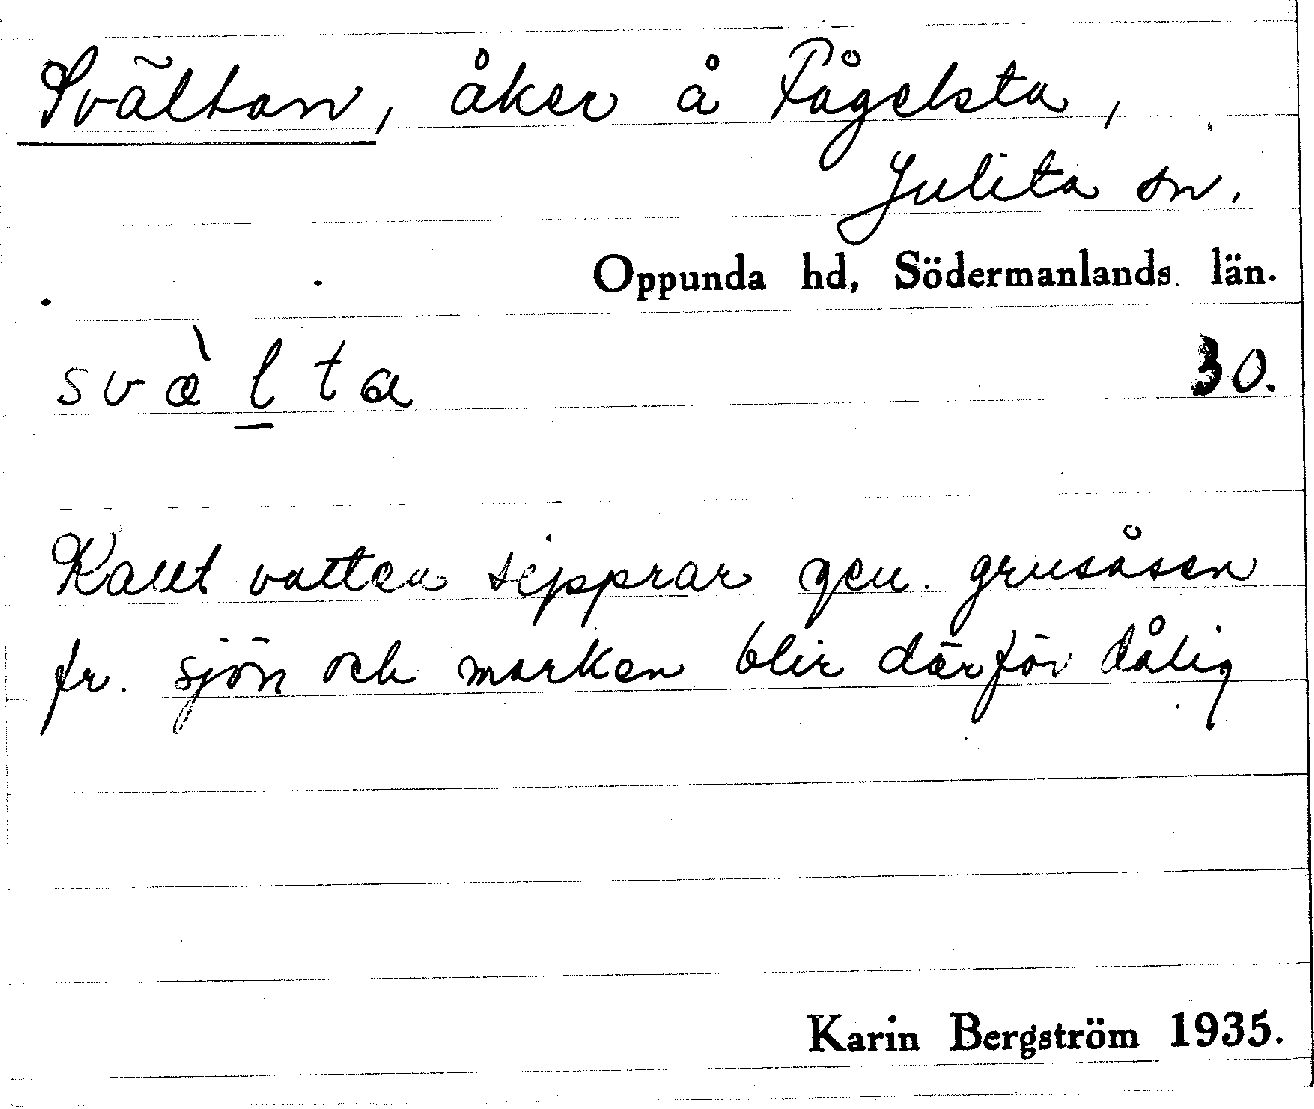 Svältan, åker å Fågelsta,
Julita sn.
Oppunda hd, Södermanlands län.
svæ̀l̲ta 30.
Kallt vatten sipprar gen. grusåsen
fr. sjön och marken blir därför dålig
Karin Bergström 1935.